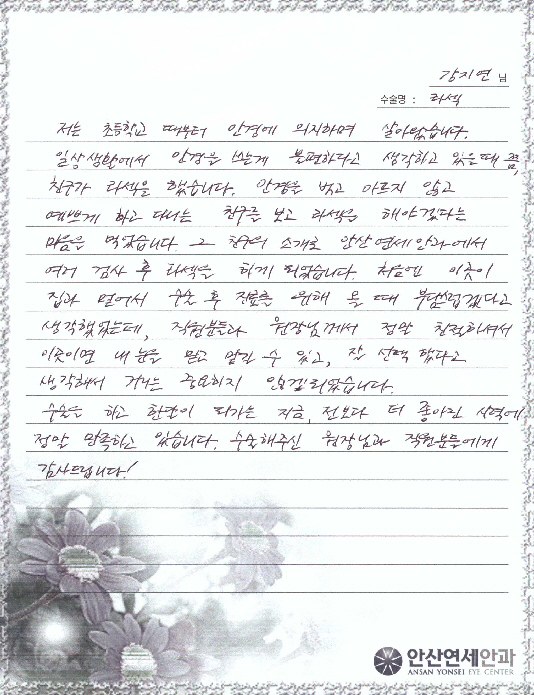 강지연 님
수술명 : 라섹
저는 초등학교 때부터 안경에 의지하며 살아왔습니다.
일상생활에서 안경을 쓰는게 불편하다고 생각하고 있을때 쯤,
친구가 라섹을 했습니다. 안경을 벗고 아프지 않고
예쁘게 하고 다니는 친구를 보고 라섹을 해야겠다는
마음을 먹었습니다. 그 친구의 소개로 안산연세안과에서
여러 검사 후 라섹을 하게 되었습니다. 처음엔 이곳이
집과 멀어서 수술 후 진료를 위해 올 때 부담스럽겠다고
생각했었는데, 직원분들과 원장님께서 정말 친절하셔서
이곳이면 내 눈을 믿고 맡길 수 있고, 잘 선택 했다고
생각해서 거리는 중요하지 않게되었습니다.
수술을 하고 한달이 되가는 지금, 전보다 더 좋아진 시력에
정말 만족하고 있습니다. 수술해주신 원장님과 직원분들에게
감사드립니다!
안산연세안과
ANSAN YONSEI EYE CENTER